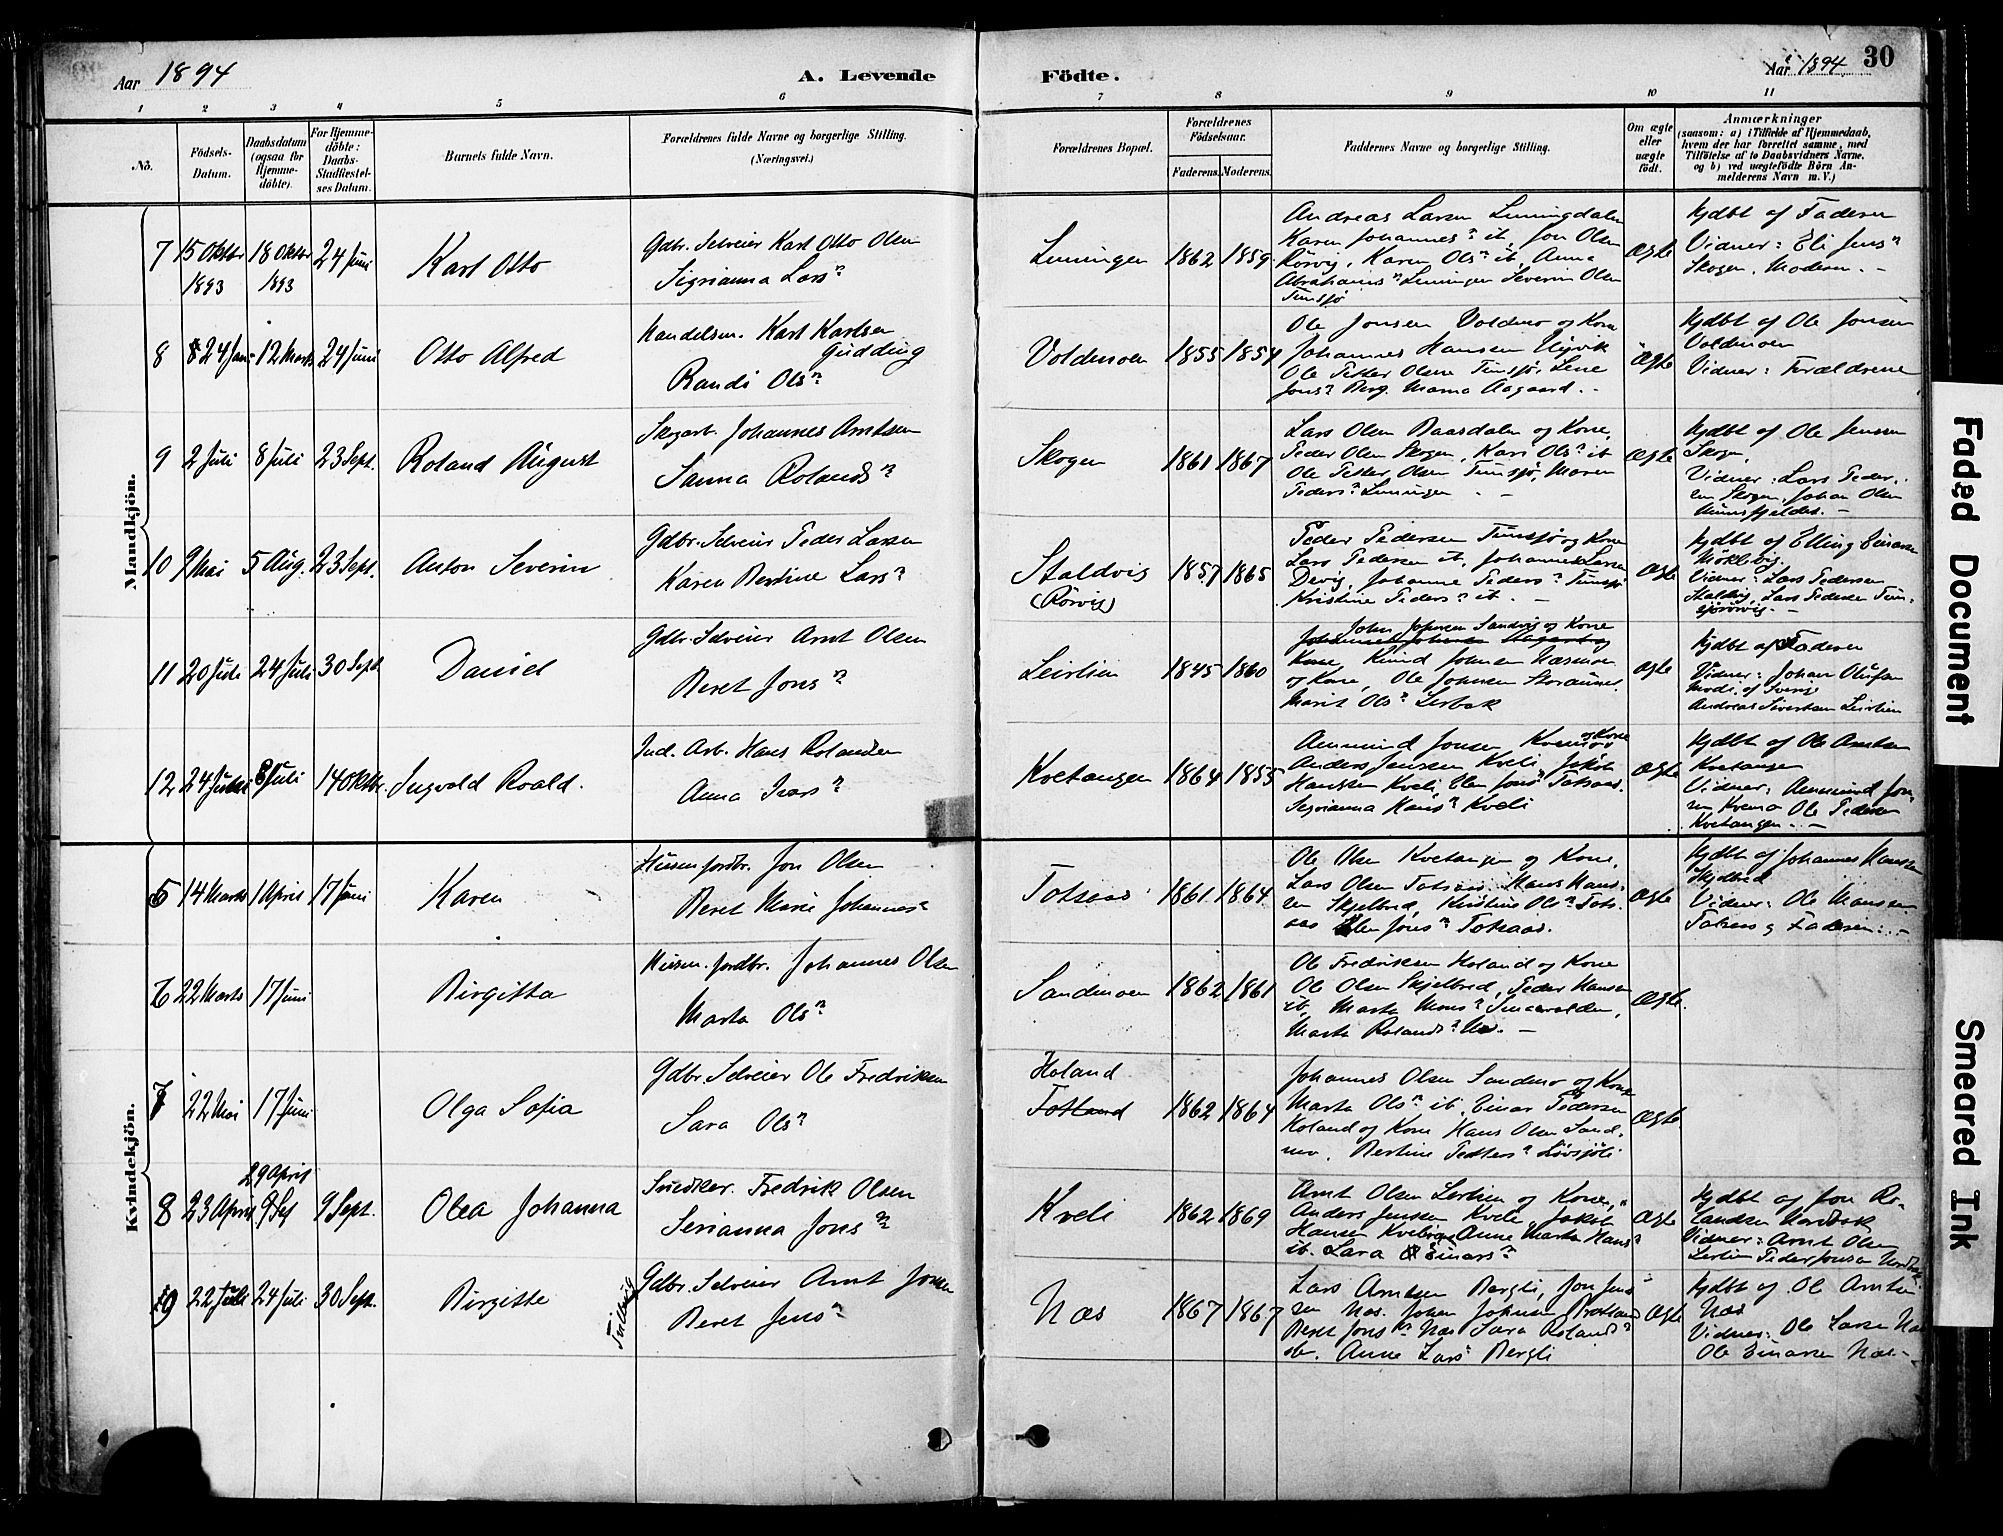 Aar 1894
A. Levende
Födte.
Aar 1894.
30
1 2 3 4 5 6 7 8 9 10 11
No.
Födsels-Datum.
Daabsdatum (ogsaa for Hjemme-döbte).
For Hjemme-döbte: Daabs-Stadfæstel-ses Datum.
Barnets fulde Navn.
Forældrenes fulde Navne og borgerlige Stilling. (Næringsvei.)
Forældrenes Bopæl.
Forældrenes Födselsaar.
Faderens. Moderens.
Faddernes Navne og borgerlige Stilling.
Om ægte eller uægte födt.
Anmærkninger (saasom: a) i Tilfælde af Hjemmedaab, hvem der har forrettet samme, med Tilföielse af to Daabsvidners Navne, og b) ved uægtefödte Börn An-melderens Navn m. V.)
Mandkjön.
7 15 Oktbr 1893 18 Oktbr 1893 24 Juni
Karl Otto
Gdbr. Selveier Karl Otto Olsen
Sigrianna Larsn
Lenningen 1862 1859
Andreas Larsen Lenningdalen
Karen Johannesn ib. Jon Olsen
Rörvig, Karen Olsn ib, Anna
Abrahamsn Lenningen Severin Olsen
Tunsjö
Ægte
hjdbt af Faderen
Vidner: Eli Jensn
Skogen, Moderen. -
8 24 Jan 12 Marts 24 Juni
Otto Alfred
Handelsm. Karl Karlsen
Gudding
Randi Olsn
Voldmoen 1855 1854
Ole Jonsen Voldmo og Kone
Johannes Hansen Ulvik
Ole Petter Olsen Tunsjö, Lene
Jonsn Berg. Marna Aagaard. -
Ægte
hjdbt af Ole Jonsen
Voldmoen
Vidner: Forældrene
9 2 Juli 8 Juli 23 Sept.
Roland August
Skogarb. Johannes Arntsen
Sanna Rolandsn
Skogen 1861 1867
Lars Olsen Raasdalen og Kone,
Peder Olsen Skogen, Kari Olsn ib
Ole Petter Olsen Tunsjö, Maren
Pedersn Lenningen
Ægte
hjdbt af Ole Jensen
Skogen,
Vidner: Lars Peder-
sen Skogen, Johan Olsen
10 9 Mai 5 Aug. 23 Sept.
Anton Severin
Gdbr. Selveier Peder Larsen
Karen Bertine Larsn
Staldvig
(Rörvig)
1857 1865
Peder Pedersen Tunsjö og Kone
Lars Pedersen ib, Johannes Larsen
Devig, Johanna Pedersn Tunsjö
Kristine Pedersn ib. -
Ægte
hjdbt af Elling Einarsen
Möklevig
Vidner: Lars Pedersen
Staldvig, Lars Pedersen Tun-
sjörörvig. -
11 20 Juli 24 Juli 30 Sept
Daniel
Gdbr. Selveier Arnt Olsen
Beret Jonsn
Leirlien 1845 1860
John Johnsen Sandvig og Kone
Kone, Knud Johnsen Næsmoen
og Kone, Ole Johnsen Storaunet.
Marit Olsn Lerbak
Ægte
hjdbt af Faderen
Vidner: Johan Olufsen
Andreas Sivertsen Leirlien
12 24 Juni 8 Juli 14 Oktbr.
Ingvald Roald.
Ind. Arb. Hans Rolandsen
Anna Ivarsn
Kvetangen 1864 1855
Ammund Jonsen Kvemo og Kone
Anders Jenssen Kveli, Jakob
Hanssen Kveli, Elen Jonsn Totsaas.
Serianna Hansn Kveli
Ægte
hjdbt af Ole Arntsen
Kvetangen
Vidner: Ammund Jon-
sen Kvemo Ole Pedersen
Kvetangen. -
Kvindekjön.
5 14 Marts 1 April 17 Juni
Karen
Husm. jordbr. Jon Olsen
Beret Marie Johannesn
Totsaas 1861 1864
Ole Olsen Kvetangen og Kone,
Lars Olsen Totsaas. Hans Hans-
en Skjelbred, Kristine Olsn Tots-
aas Elen Jonsn Totsaas.
Ægte
hjdbt af Johannes Hansen
Skjelbred
Vidner: Ole Hansen
Totsaas og Faderen. -
6 22 Marts 17 Juni
Birgitta
Husm. jordbr. Johannes Olsen
Marta Olsn
Sandmoen 1862 1861
Ole Fredriksen Holand og Kone
Ole Olsen Skjelbred, Peder Hansen
ib, Marta Monsn Smaavolden,
Marta Rolandsn Næs. -
Ægte.
7 22 Mai 17 Juni
Olga Sofia
Gdbr. Selveier Ole Fredriksen
Sara Olsn
Holand
1862 1864
Johannes Olsen Sandmo og Kone
Marta Olsn ib. Einar Pedersen
Holand og Kone Hans Olsen Sand-
mo, Bertine Pedersn Lövsjöli
Ægte
8 23 April 29 April 9 Sept 9 Sept.
Olea Johanna
Snedker. Fredrik Olsen
Serianna Jonsn
Kveli 1862 1869
Arnt Olsen Lerlien og Kone,
Anders Jenssen Kveli, Jakob
Hansen Kveli, Anne Marta Hansn
ib. Sara Einarsn
Ægte
hjdbt af Jon Ro-
landsen Nordbak
Vidner: Arnt Olsen
Lerlien Peder Jonsen Nordbak
9 22 Juli 24 Juli 30 Sept.
Birgitte
Tvilling
Gdbr. Selveier Arnt Jonsen
Beret Jensn
Næs 1867 1867
Lars Arntsen Bergli, Jon Jens-
en Næs. Johan Johnsen
Beret Jonsn Næs Sara Rolandsn
ib. Anne Larsn Bergli
Ægte
hjdbt af Ole Arntsen
Næs
Vidner: Ole Larsen Næs
Ole Einarsen Næs. -
Faded Document
Smeared Ink